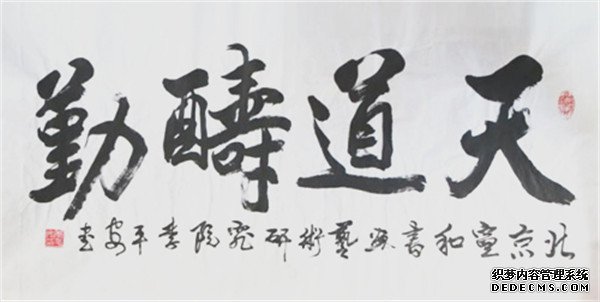 天道醻勤
北京宣和書畫藝術研究院李平安书
织梦内容管理系统
DEDECMS.COM